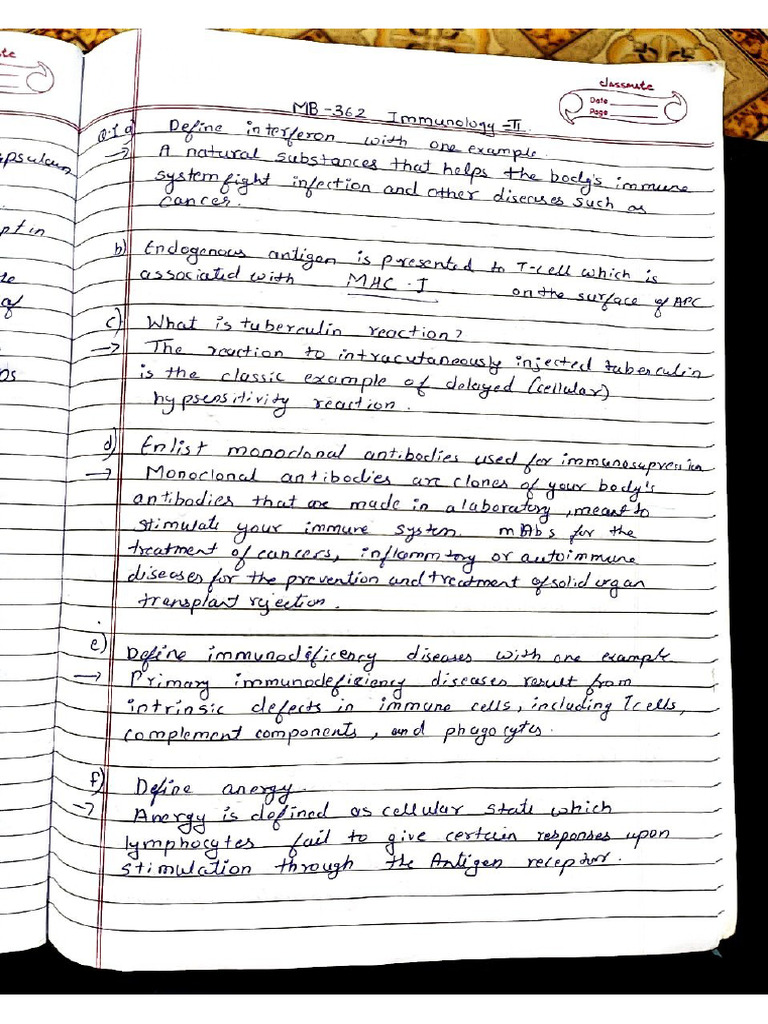 te
apsulam
pt in
te
of
os
classmate
Date
Page
MB-362 Immunology-II.
Q.1 a) Define interferon with one example.
→ A natural substances that helps the body's immune
system fight infection and other diseases such as
cancer.
b) Endogenous antigen is presented to T-cell which is
associated with MHC-I on the surface of APC
c) What is tuberculin reaction?
→ The reaction to intracutaneously injected tuberculin
is the classic example of delayed (cellular)
hypsensitivity reaction.
d) Enlist monoclonal antibodies used for immunosupression
→ Monoclonal antibodies are clones of your body's
antibodies that are made in a laboratory, meant to
stimulate your immune system. mAbs for the
treatment of cancers, inflammtory or autoimmune
diseases for the prevention and treatment of solid organ
transplant rejection.
e) Define immunodificency diseases with one example
→ Primary immunodeficiency diseases result from
intrinsic defects in immune cells, including Tcells,
complement components, and phagocytes.
f) Define anergy.
→ Anergy is defined as cellular state which
lymphocytes fail to give certain responses upon
stimulation through the Antigen receptor.